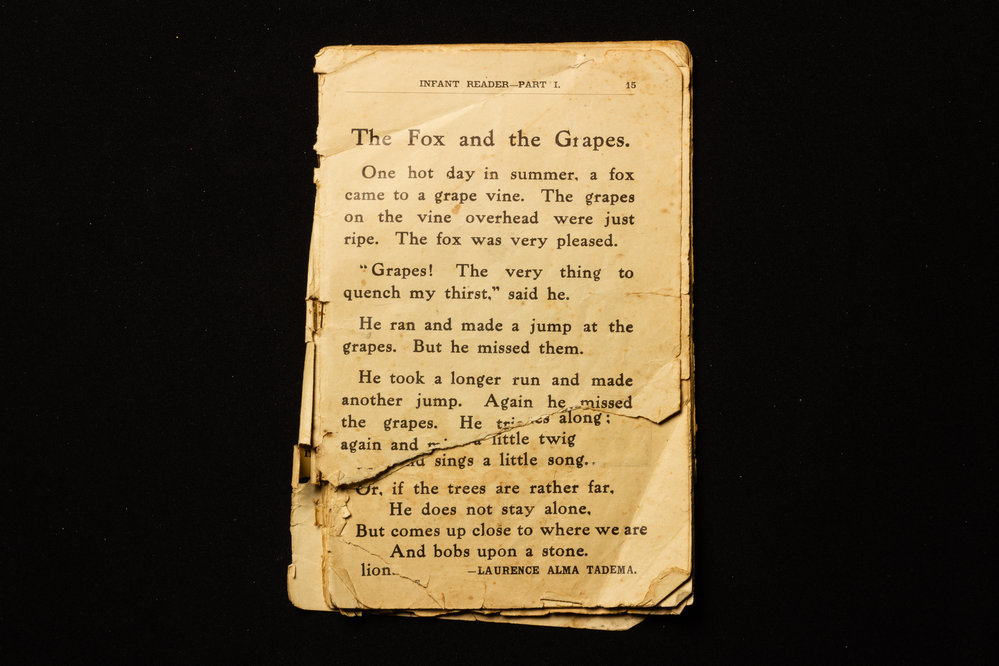 INFANT READER—PART I. 15
The Fox and the Grapes.
One hot day in summer, a fox
came to a grape vine. The grapes
on the vine overhead were just
ripe. The fox was very pleased.
"Grapes! The very thing to
quench my thirst," said he.
He ran and made a jump at the
grapes. But he missed them.
He took a longer run and made
another jump. Again he missed
the grapes. He along;
again and little twig
sings a little song..
Or, if the trees are rather far,
He does not stay alone,
But comes up close to where we are
And bobs upon a stone.
lion. —LAURENCE ALMA TADEMA.